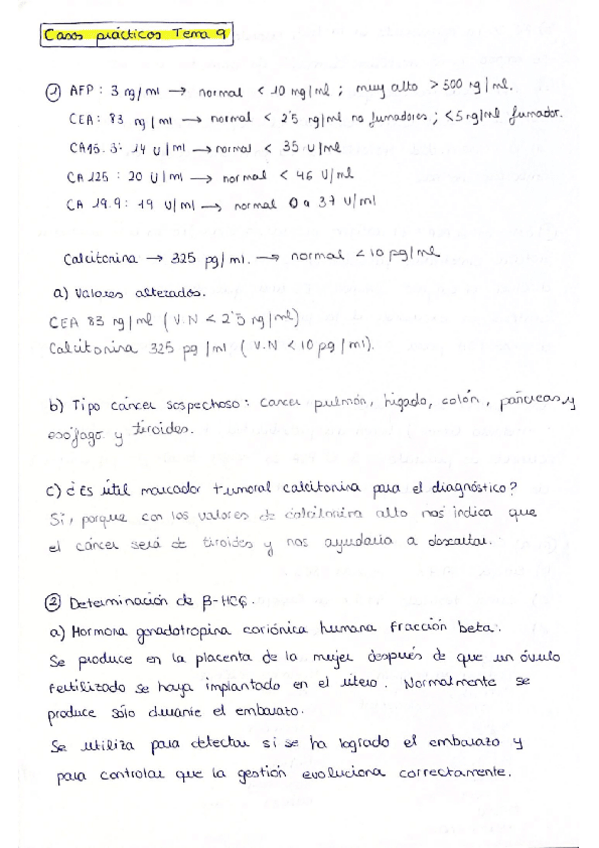 Casos prácticos Tema 9
① AFP : 3 ng/ml → normal < 10 mg/ml ; muy alto > 500 ng/ml.
CEA : 83 ng/ml → normal < 2'5 ng/ml no fumadores ; < 5 ng/ml fumador.
CA15.3 : 14 U/ml → normal < 35 U/ml
CA 125 : 20 U/ml → normal < 46 U/ml
CA 19.9 : 19 U/ml → normal 0 a 37 U/ml
Calcitonina → 325 pg/ml. → normal < 10 pg/ml
a) Valores alterados.
CEA 83 ng/ml ( V.N < 2'5 ng/ml)
Calcitonina 325 pg/ml ( V.N < 10 pg/ml).
b) Tipo cáncer sospechoso : cancer pulmón, hígado, colón, páncreas, y
esófago y tiroides.
c) ¿Es útil marcador tumoral calcitonina para el diagnóstico?
Si, porque con los valores de calcitonina alto nos indica que
el cáncer será de tiroides y nos ayudaria a descartar.
② Determinación de β-HCG.
a) Hormona gonadotropina coriónica humana fracción beta.
Se produce en la placenta de la mujer después de que un óvulo
fertilizado se haya implantado en el útero. Normalmente se
produce sólo durante el embarazo.
Se utiliza para detectar si se ha logrado el embarazo y
para controlar que la gestión evoluciona correctamente.